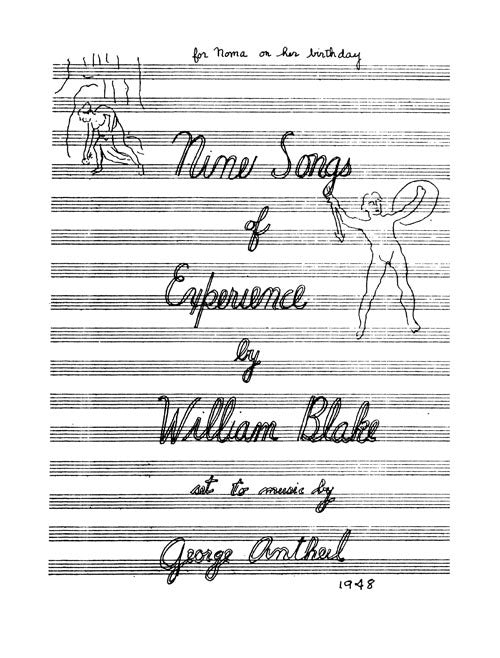 for Noma on her birthday
Nine Songs
of
Experience
by
William Blake
set to music by
George Antheil
1948